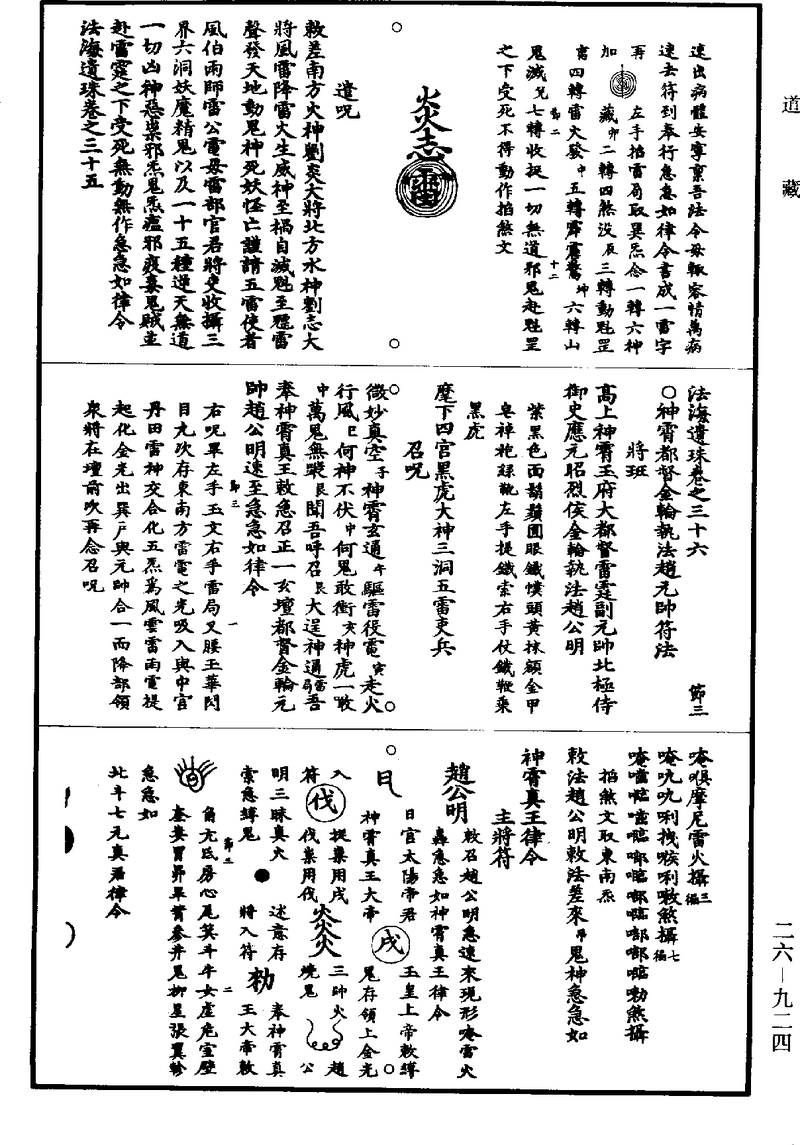 道藏
速出病體安寧稟吾法令毋輒容情萬病
速去符到奉行急急如律令書成一雷字
再 左手掐雷局取巽炁念一轉六神
加 藏卯二轉四煞没辰三轉動魁罡
雷四轉雷火發中五轉霹靂驚坤六轉山
鬼滅兄七轉收捉一切無道邪鬼赴魁罡
之下受死不得動作掐煞文
節二
十二
炎炎志雷
遣呪
敕差南方火神劉炎大將北方水神劉志大
將風雷降雷火生威神至禍自滅魁至聽雷
聲發天地動鬼神死妖怪亡謹請五雷使者
風伯雨師雷公電母雷部官君將吏收攝三
界六洞妖魔精鬼以及一十五種逆天無道
一切凶神惡鬼邪炁鬼炁瘟邪疫毒鬼賊並
赴雷霆之下受死無動無作急急如律令
法海遺珠卷之三十五
法海遺珠卷之三十六
節三
○神霄都督金輪執法趙元帥符法
將班
高上神霄玉府大都督雷霆副元帥北極侍
御史應元昭烈侯金輪執法趙公明
紫黑色面鬍鬚圓眼鐵幞頭黄抹額金甲
皂褌袍綠靴左手提鐵索右手仗鐵鞭乘
黑虎
麾下四官黑虎大神三洞五雷吏兵
召呪
微妙真空子神霄玄通午驅雷役電寅走火
行風巳何神不伏申何鬼敢衝亥神虎一噉
申萬鬼無裝艮聞吾呼召艮大逞神通雷局吾
奉神霄真王敕急召正一玄壇都督金輪元
帥趙公明速至急急如律令
節三
一
右呪畢左手玉文右手雷局叉腰玉華閃
目九次存東南方雷電之光吸入與中宫
丹田雷神交合化五炁爲風雲雷雨電提
起化金光出巽户與元帥合一而降部領
衆將在壇前吹再念召呪
唵㗋摩尼雷火攝三徧
唵吙吙唎拽㗋唎噉煞攝七徧
唵㘄㗶㘄㗶啷㗶啷㗶啷啷㗶嘞煞攝
掐煞文取東南炁
敕法趙公明敕法差來吊鬼神急急如
神霄真王律令
主將符
趙公明
敕召趙公明急速來現形唵雷火
轟急急如神霄真王律令
日
日宫太陽帝君
玉皇上帝敕縛
神霄真王大帝
戌
鬼存領上金光
入 捉祟用戌
三帥火 趙
符 伐 伐祟用伐
炎炎火
燒鬼 公
明三昧真火
述意存
奉神霄真
索急縛鬼
將入符
勑
王大帝敕
節三
二
角亢氐房心尾箕斗牛女虚危室壁
奎婁胃昴畢觜參井鬼柳星張翼軫
急急如
北斗七元真君律令
二六—九二四